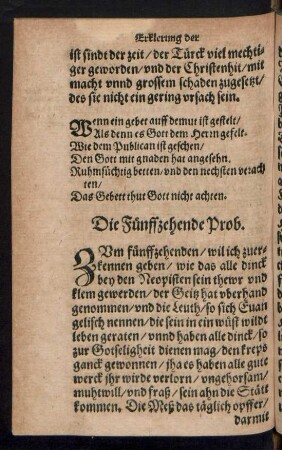 Erklerung der
ist sindt der zeit / der Türck viel mechti-
ger geworden / vnd der Christenhit / mit
macht vnnd grossem schaden zugesetzt /
des sie nicht ein gering vrsach sein.
Wenn ein geber auff demut ist gestelt /
Als denn es Gott dem Herrn gefelt.
Wie dem Publican ist geschen /
Den Gott mit gnaden hat angesehn.
Ruhmsüchtig betten / vnd den nechsten verach
ten /
Das Gebett thut Gott nicht achten.
Die Fünffzehende Prob.
ZVm fünffzehenden / wil ich zuer-
kennen geben / wie das alle dinck
bey den Neopisten sein thewr vnd
klem gewerden / der Geitz hat vberhand
genommen / vnd die Leuth / so sich Euan
gelisch nennen / die sein in ein wüst wildt
leben geraten / vnnd haben alle dinck / so
zur Gotseligheit dienen mag / den kreps
ganck gewonnen / jha es haben alle gute
werck jhr wirde verlorn / vngehorsam /
muhtwill / vnd fraß / sein ahn die Städt
kommen. Die Meß das täglich opffer /
darmit